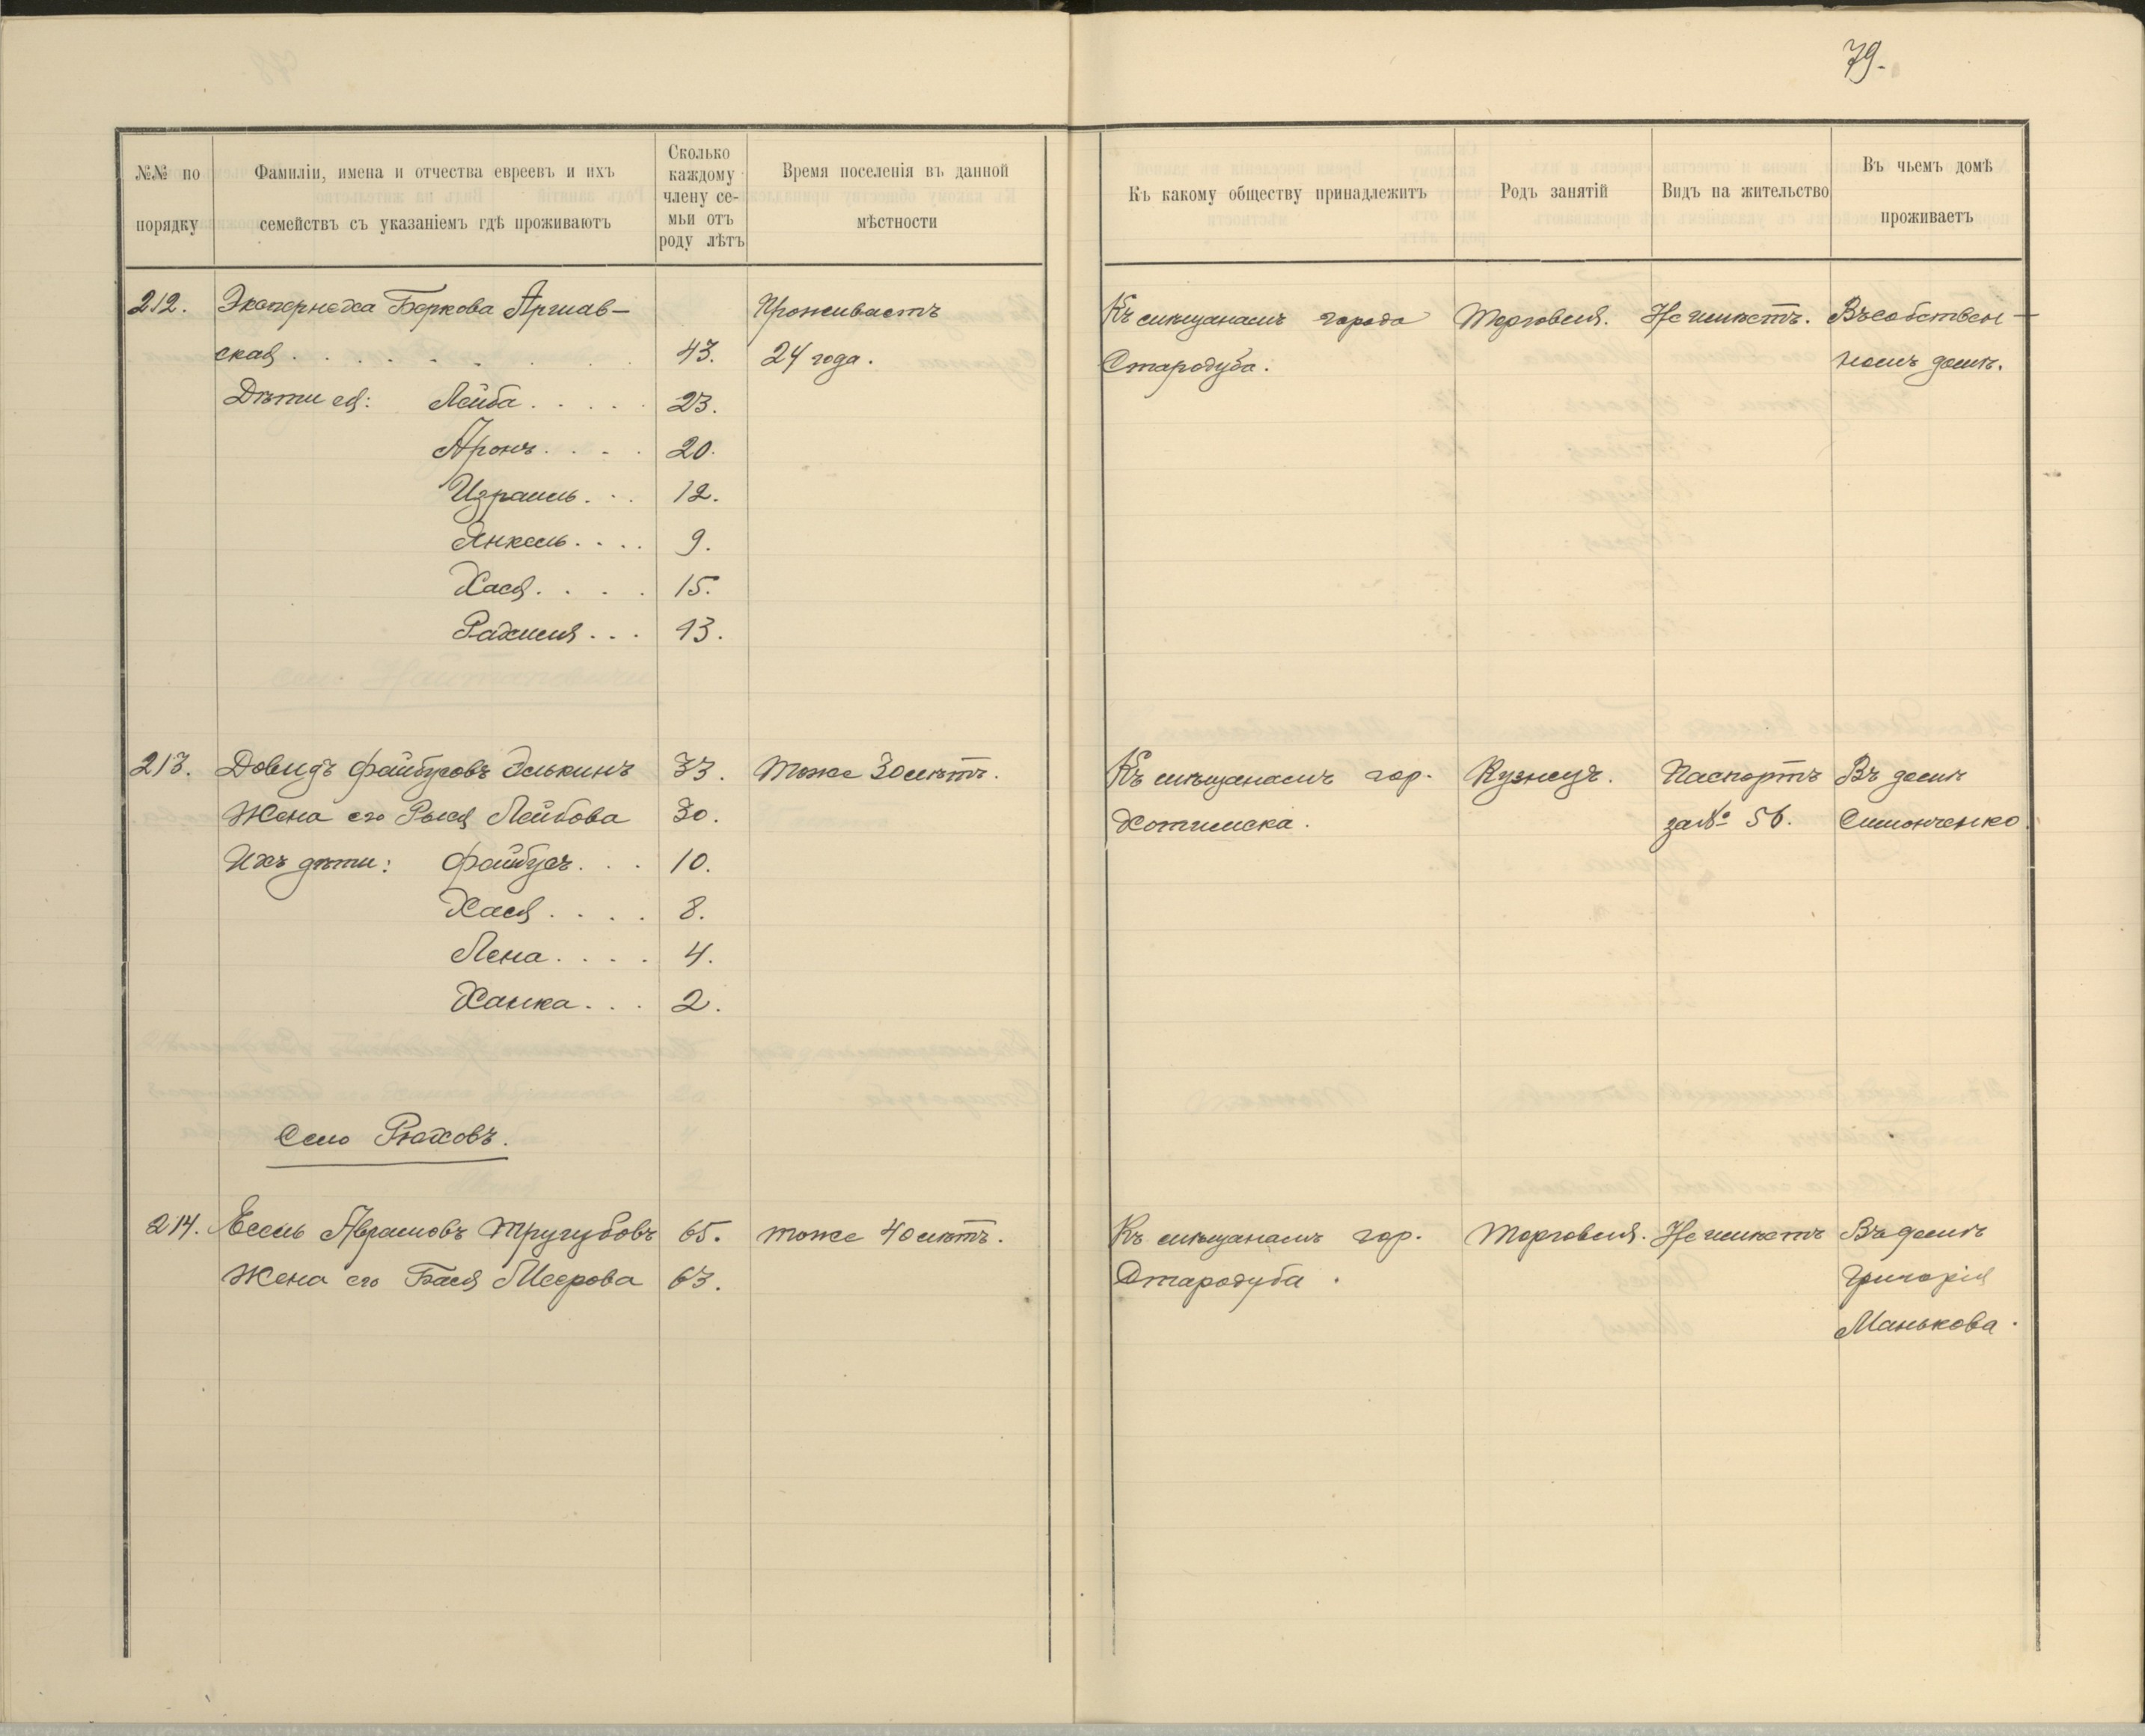 79.
№№ по порядку
Фамиліи, имена и отчества евреевъ и ихъ семействъ съ указаніемъ гдѣ проживаютъ
Сколько каждому члену се-мьи отъ роду лѣтъ
Время поселенія въ данной мѣстности
Къ какому обществу принадлежитъ
Родъ занятій
Видъ на жительство
Въ чьемъ домѣ проживаетъ
212. Беркова Проживаетъ Къ мѣщанамъ города Торговля. Не имѣетъ. Въ собствен-
ская . . . . . . . 43. 24 года. Стародуба. номъ домѣ.
Дѣти ея: Лейба . . . . . 23.
Аронъ . . . . 20.
Израиль . . . 12.
Янкель . . . . 9.
Хася . . . . 15.
Рахиля . . . 13.
213. Довидъ Файбусовъ Элькинъ 33. Тоже 30 лѣтъ. Къ мѣщанамъ гор. Кузнецъ. Паспортъ Въ домѣ
Жена его Рыся Лейбова 30. Хотимска. за № 56. Симонченко.
Ихъ дѣти: Файбусъ . . . 10.
Хася . . . . 8.
Лена . . . . 4.
Ханка . . . 2.
Село Рюховъ.
214. Есель Абрамовъ Тругубовъ 65. тоже 40 лѣтъ. Къ мѣщанамъ гор. Торговля. Не имѣетъ Въ домѣ
Жена его Бася Меерова 63. Стародуба. Григорія
Манькова.